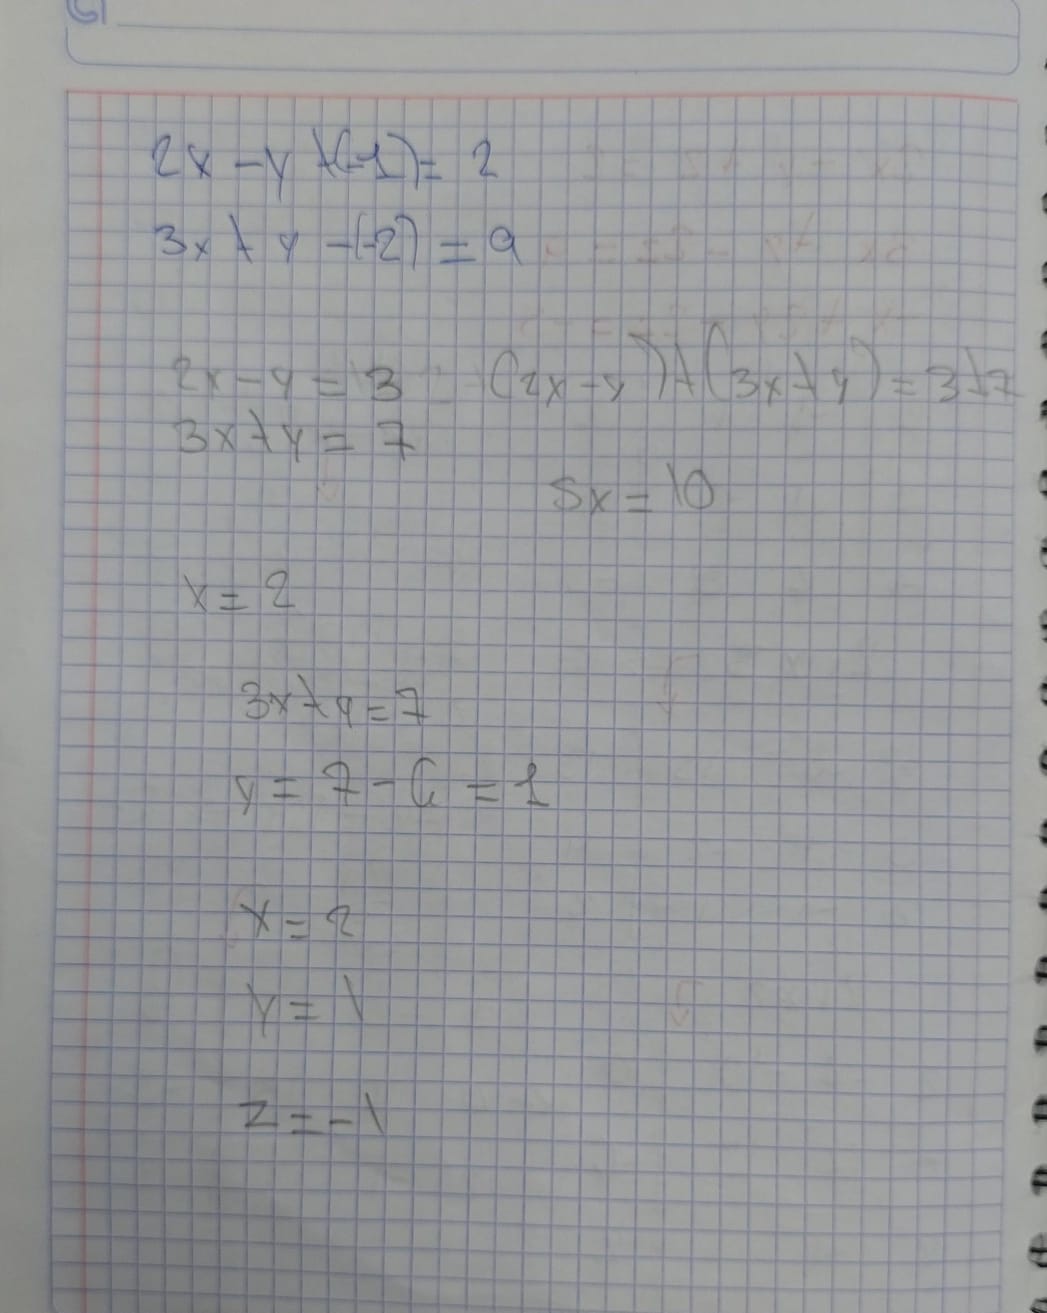 2x - y + (-1) = 2
3x + y - (-2) = 9
2x - y = 3 (2x - y) + (3x + y) = 3 + 7
3x + y = 7
5x = 10
x = 2
3x + y = 7
y = 7 - 6 = 1
x = 2
y = 1
z = -1